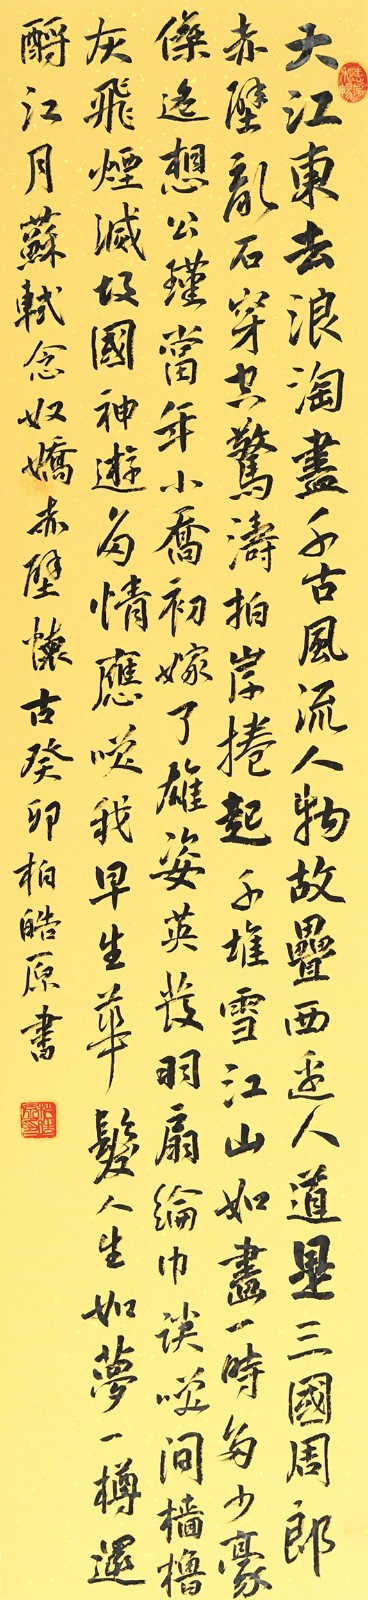 大江東去浪淘盡千古風流人物故疊西邊人道是三國周郎
赤壁亂石穿空驚濤拍岸捲起千堆雪江山如畫一時多少豪
傑遙想公瑾當年小喬初嫁了雄姿英發羽扇綸巾談笑間檣櫓
灰飛煙滅故國神遊多情應笑我早生華髮人生如夢一樽還
酹江月蘇軾念奴嬌赤壁懷古癸卯柏皓原書